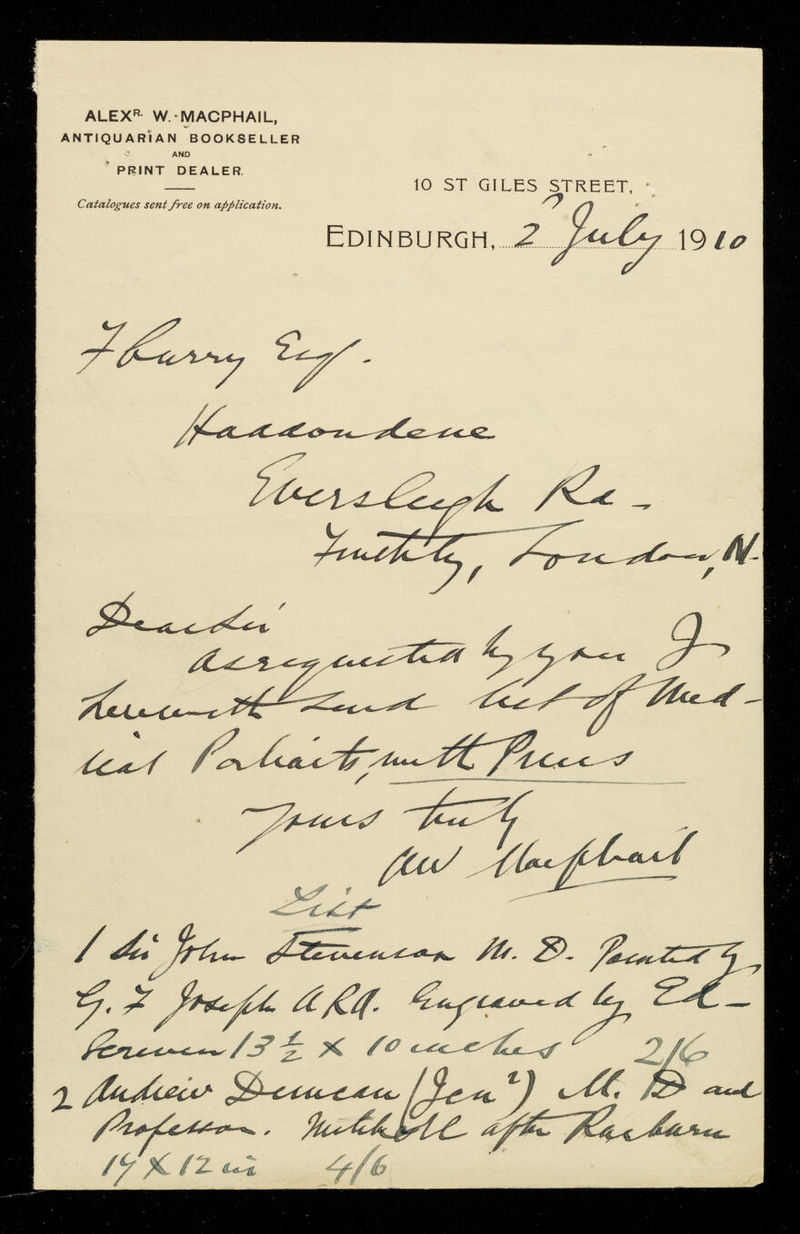 ALEXR. W. MACPHAIL,
ANTIQUARIAN BOOKSELLER
AND
PRINT DEALER.
Catalogues sent free on application.
10 ST GILES STREET,
EDINBURGH, 2 July 1910
F Curry Esq.
Haddondene
Eversleigh Rd -
Finchley, London, N.
Dear Sir
As requested by you I
herewith send list of Med-
ical Portraits, with Prices
Yours truly
AW Macphail
List
1 Sir John Stevenson M. D. Painted by
G. F Joseph ARA. Engraved by Ed-
Scriven 13 1/2 x 10 inches 2/6
2 Andrew Duncan (Senr) M. D and
Professor. Mitchell after Raeburn
17 x 12 in 4/6